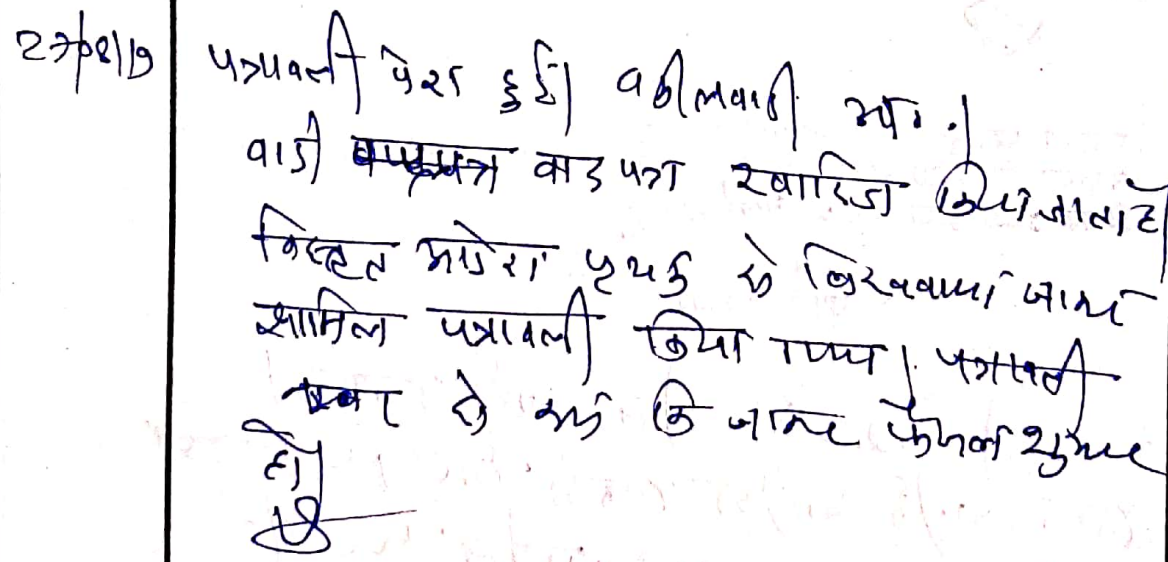 27/08/19
पत्रावली पेश हुई। वकीलवादी उप.।
वादी वाद पत्र खारिज किया जाता है
विस्तृत आदेश पृथक से लिखवाया जाकर
शामिल पत्रावली किया गया। पत्रावली
नम्बर से कम कि जाकर फैसल शुमार
हो।